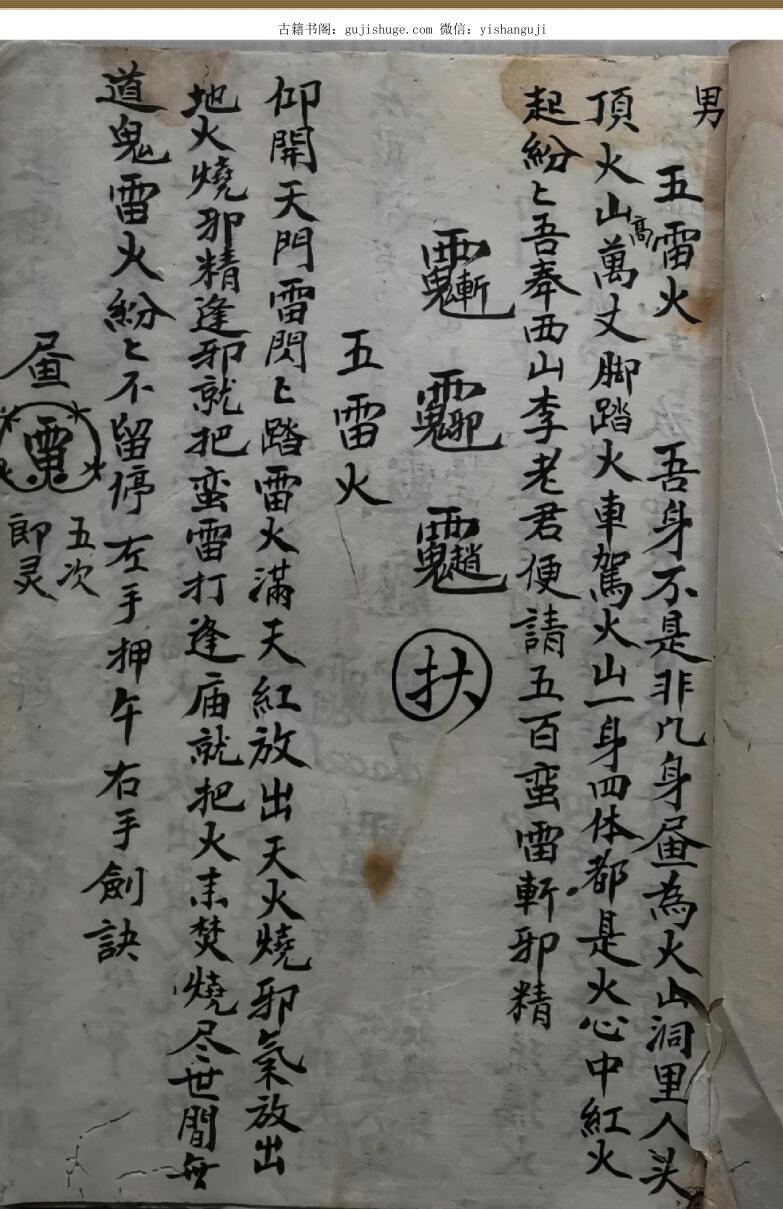 古籍书阁: gujishuge.com 微信: yishanguji
男
五雷火
吾身不是非凡身 為火山洞里人头
頂火山高萬丈脚踏火車駕火山一身四体都是火心中紅火
起紛〻吾奉西山李老君便請五百蛮雷斬邪精
扶
五雷火
仰開天門雷閃〻踏雷火滿天紅放出天火燒邪氣放出
地火燒邪精逢邪就把蛮雷打逢庙就把火来焚燒尽世間無
道鬼雷火紛〻不留停左手押午右手劍訣
五次
郎灵